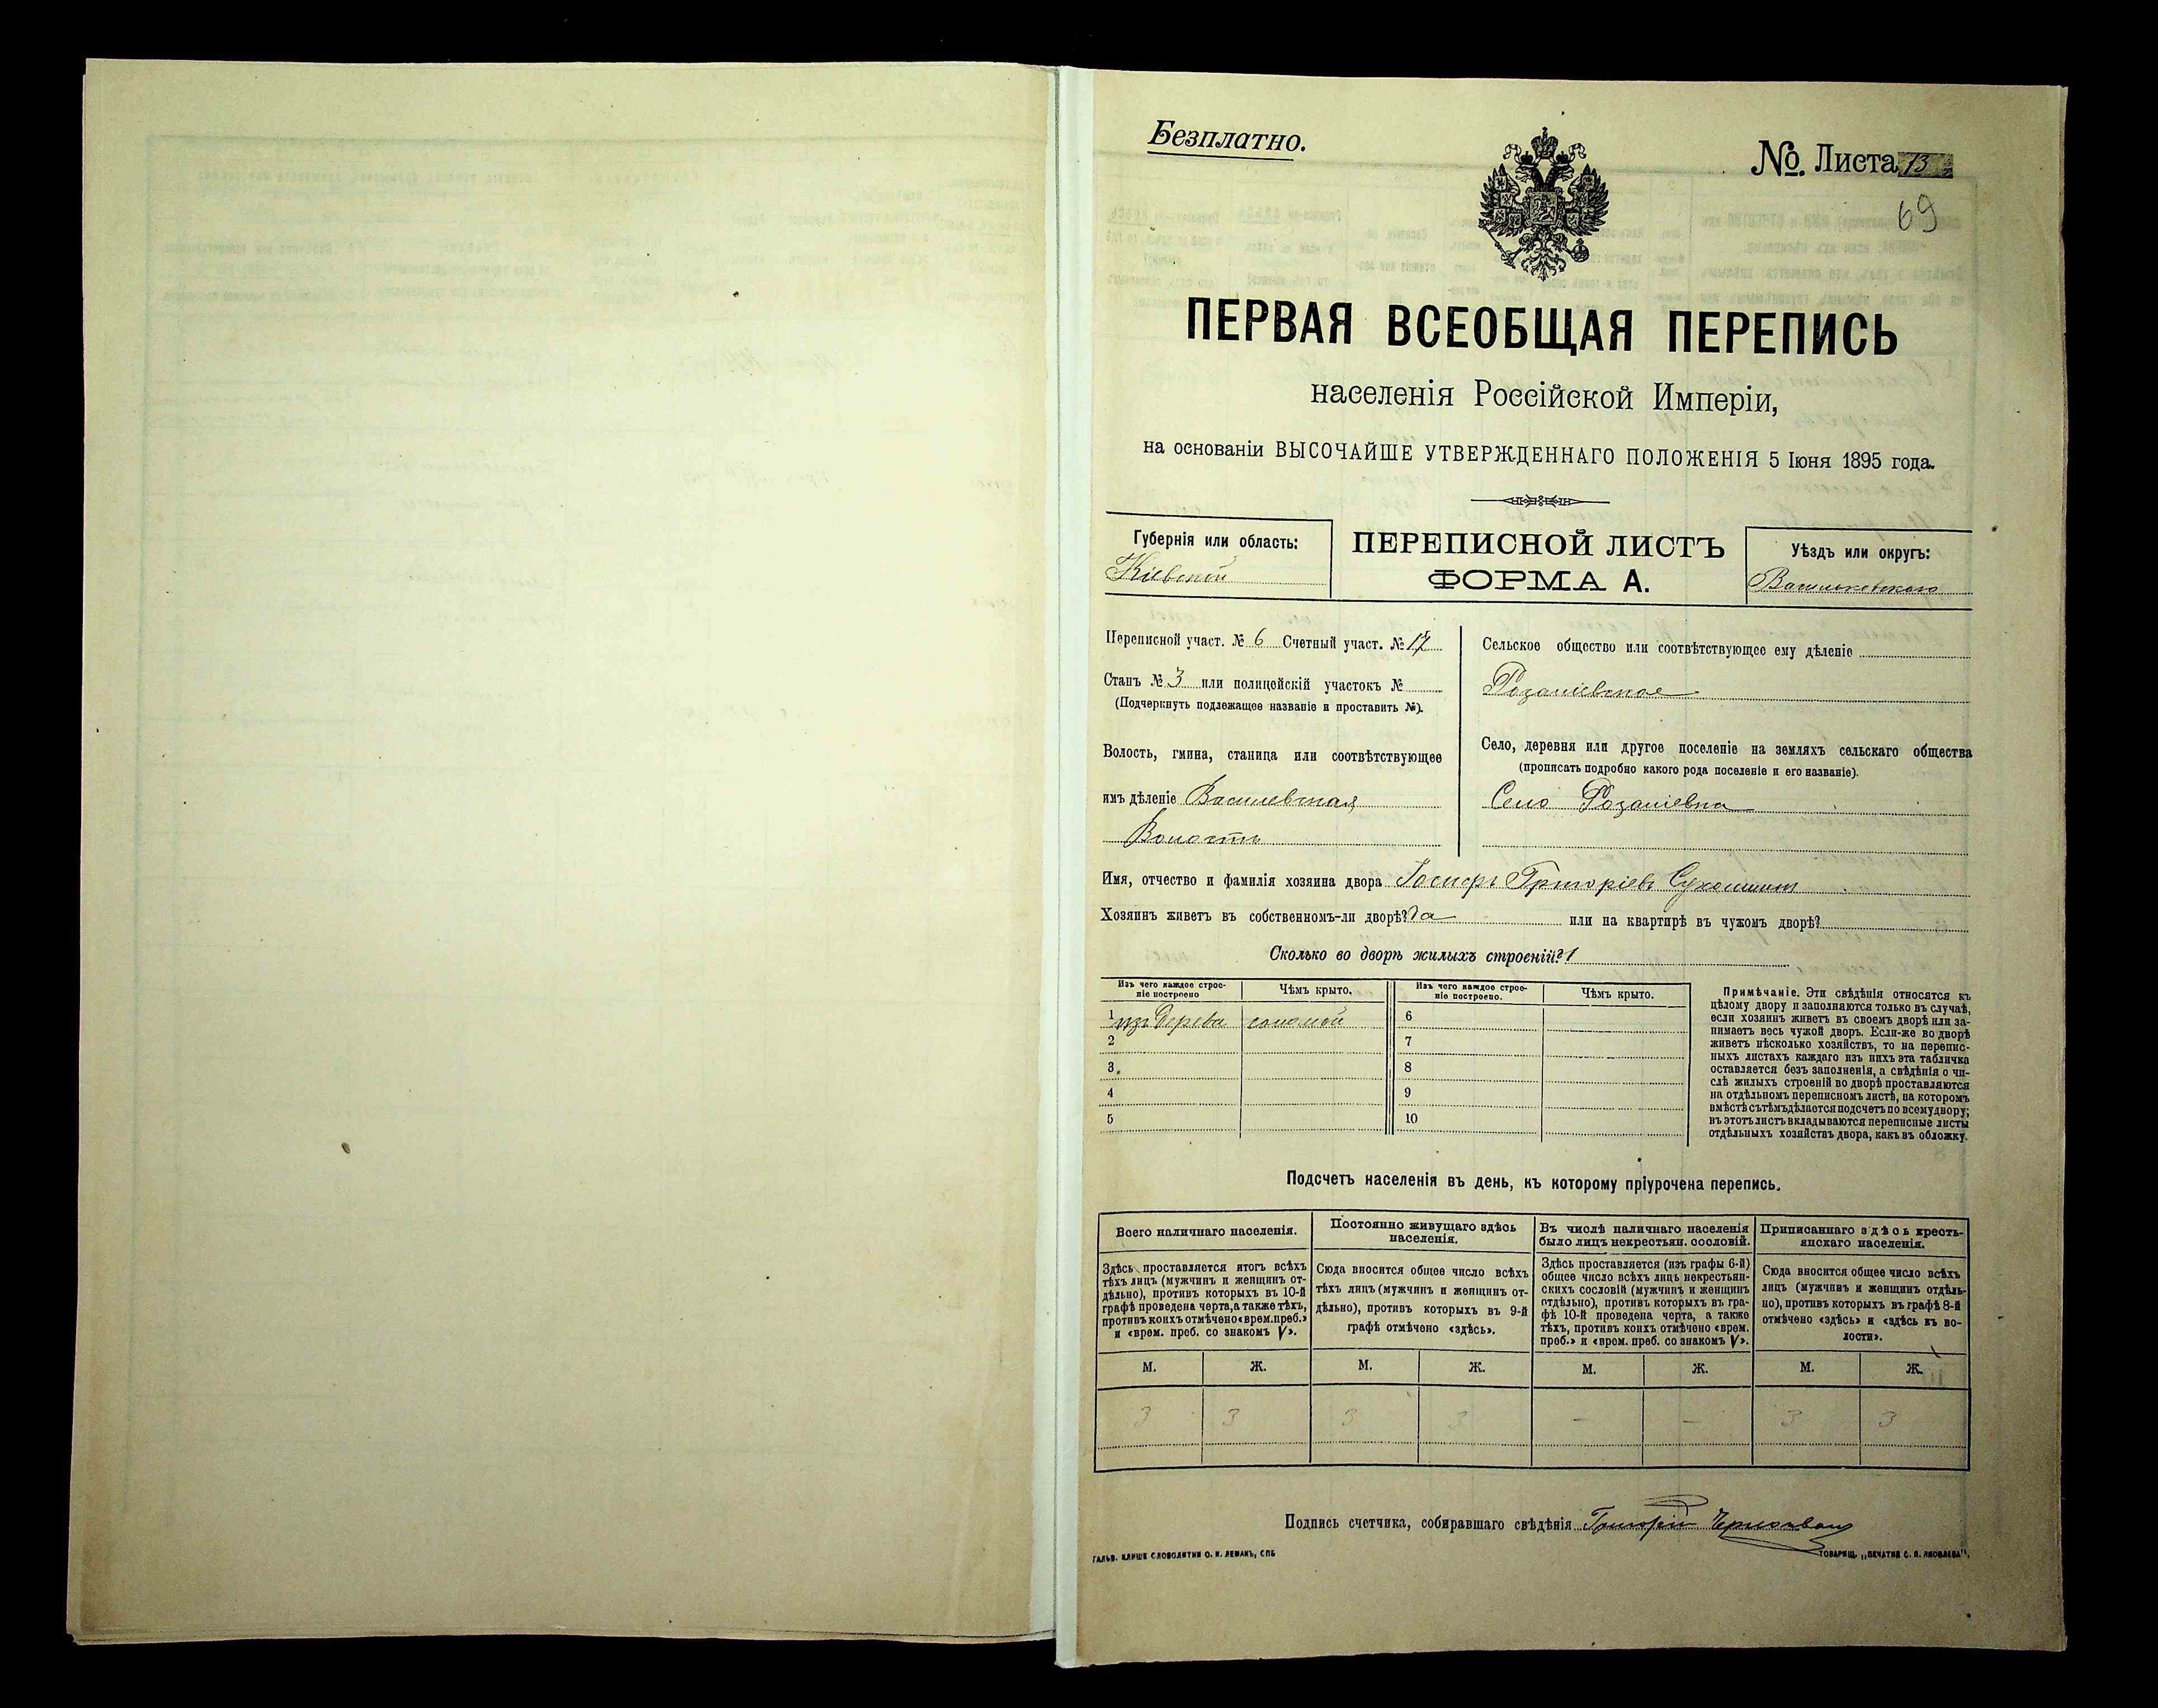 Безплатно.
№. Листа 13
69
ПЕРВАЯ ВСЕОБЩАЯ ПЕРЕПИСЬ
населенія Россійской Имперіи,
на основаніи ВЫСОЧАЙШЕ УТВЕРЖДЕННАГО ПОЛОЖЕНІЯ 5 Іюня 1895 года.
Губернія или область:
Кіевской
ПЕРЕПИСНОЙ ЛИСТЪ
ФОРМА А.
Уѣздъ или округъ:
Васильковскаго
Переписной участ. № 6 Счетный участ. № 17
Станъ № 3 или полицейскій участокъ №
(Подчеркнуть подлежащее названіе и проставить №).
Волость, гмина, станица или соотвѣтствующее
имъ дѣленіе
Волость
Сельское общество или соотвѣтствующее ему дѣленіе
Село, деревня или другое поселеніе на земляхъ сельскаго общества
(прописать подробно какого рода поселеніе и его названіе).
Село
Имя, отчество и фамилія хозяина двора Григоріевъ
Хозяинъ живетъ въ собственномъ-ли дворѣ? да или на квартирѣ въ чужомъ дворѣ?
Сколько во дворѣ жилыхъ строеній? 1
Изъ чего каждое строе-
ніе построено
Чѣмъ крыто.
Изъ чего каждое строе-
ніе построено.
Чѣмъ крыто.
1 изъ дерева соломой
2
3
4
5
6
7
8
9
10
Примѣчаніе. Эти свѣдѣнія относятся къ
цѣлому двору и заполняются только въ случаѣ,
если хозяинъ живетъ въ своемъ дворѣ или за-
нимаетъ весь чужой дворъ. Если-же во дворѣ
живетъ нѣсколько хозяйствъ, то на перепис-
ныхъ листахъ каждаго изъ нихъ эта табличка
оставляется безъ заполненія, а свѣдѣнія о чи-
слѣ жилыхъ строеній во дворѣ проставляются
на отдѣльномъ переписномъ листѣ, на которомъ
вмѣстѣ съ тѣмъ дѣлается подсчетъ по всему двору;
въ этотъ листъ вкладываются переписные листы
отдѣльныхъ хозяйствъ двора, какъ въ обложку.
Подсчетъ населенія въ день, къ которому пріурочена перепись.
Всего наличнаго населенія.
Здѣсь проставляется итогъ всѣхъ
тѣхъ лицъ (мужчинъ и женщинъ от-
дѣльно), противъ которыхъ въ 10-й
графѣ проведена черта, а также тѣхъ,
противъ коихъ отмѣчено «врем. преб.»
и «врем. преб. со знакомъ V».
Постоянно живущаго здѣсь
населенія.
Сюда вносится общее число всѣхъ
тѣхъ лицъ (мужчинъ и женщинъ от-
дѣльно), противъ которыхъ въ 9-й
графѣ отмѣчено «здѣсь».
Въ числѣ наличнаго населенія
было лицъ некрестьян. сословій.
Здѣсь проставляется (изъ графы 6-й)
общее число всѣхъ лицъ некрестьян-
скихъ сословій (мужчинъ и женщинъ
отдѣльно), противъ которыхъ въ гра-
фѣ 10-й проведена черта, а также
тѣхъ, противъ коихъ отмѣчено «врем.
преб.» и «врем. преб. со знакомъ V».
Приписаннаго здѣсь кресть-
янскаго населенія.
Сюда вносится общее число всѣхъ
лицъ (мужчинъ и женщинъ отдѣль-
но), противъ которыхъ въ графѣ 8-й
отмѣчено «здѣсь» и «здѣсь къ во-
лости».
М. Ж. М. Ж. М. Ж. М. Ж.
3 3 3 3 — — 3 3
Подпись счетчика, собиравшаго свѣдѣнія Григорій
ГАЛЬВ. КЛИШЕ СЛОВОЛИТНИ О. И. ЛЕМАНЪ, СПБ
ТОВАРИЩ. „ПЕЧАТНЯ С. П. ЯКОВЛЕВА“.